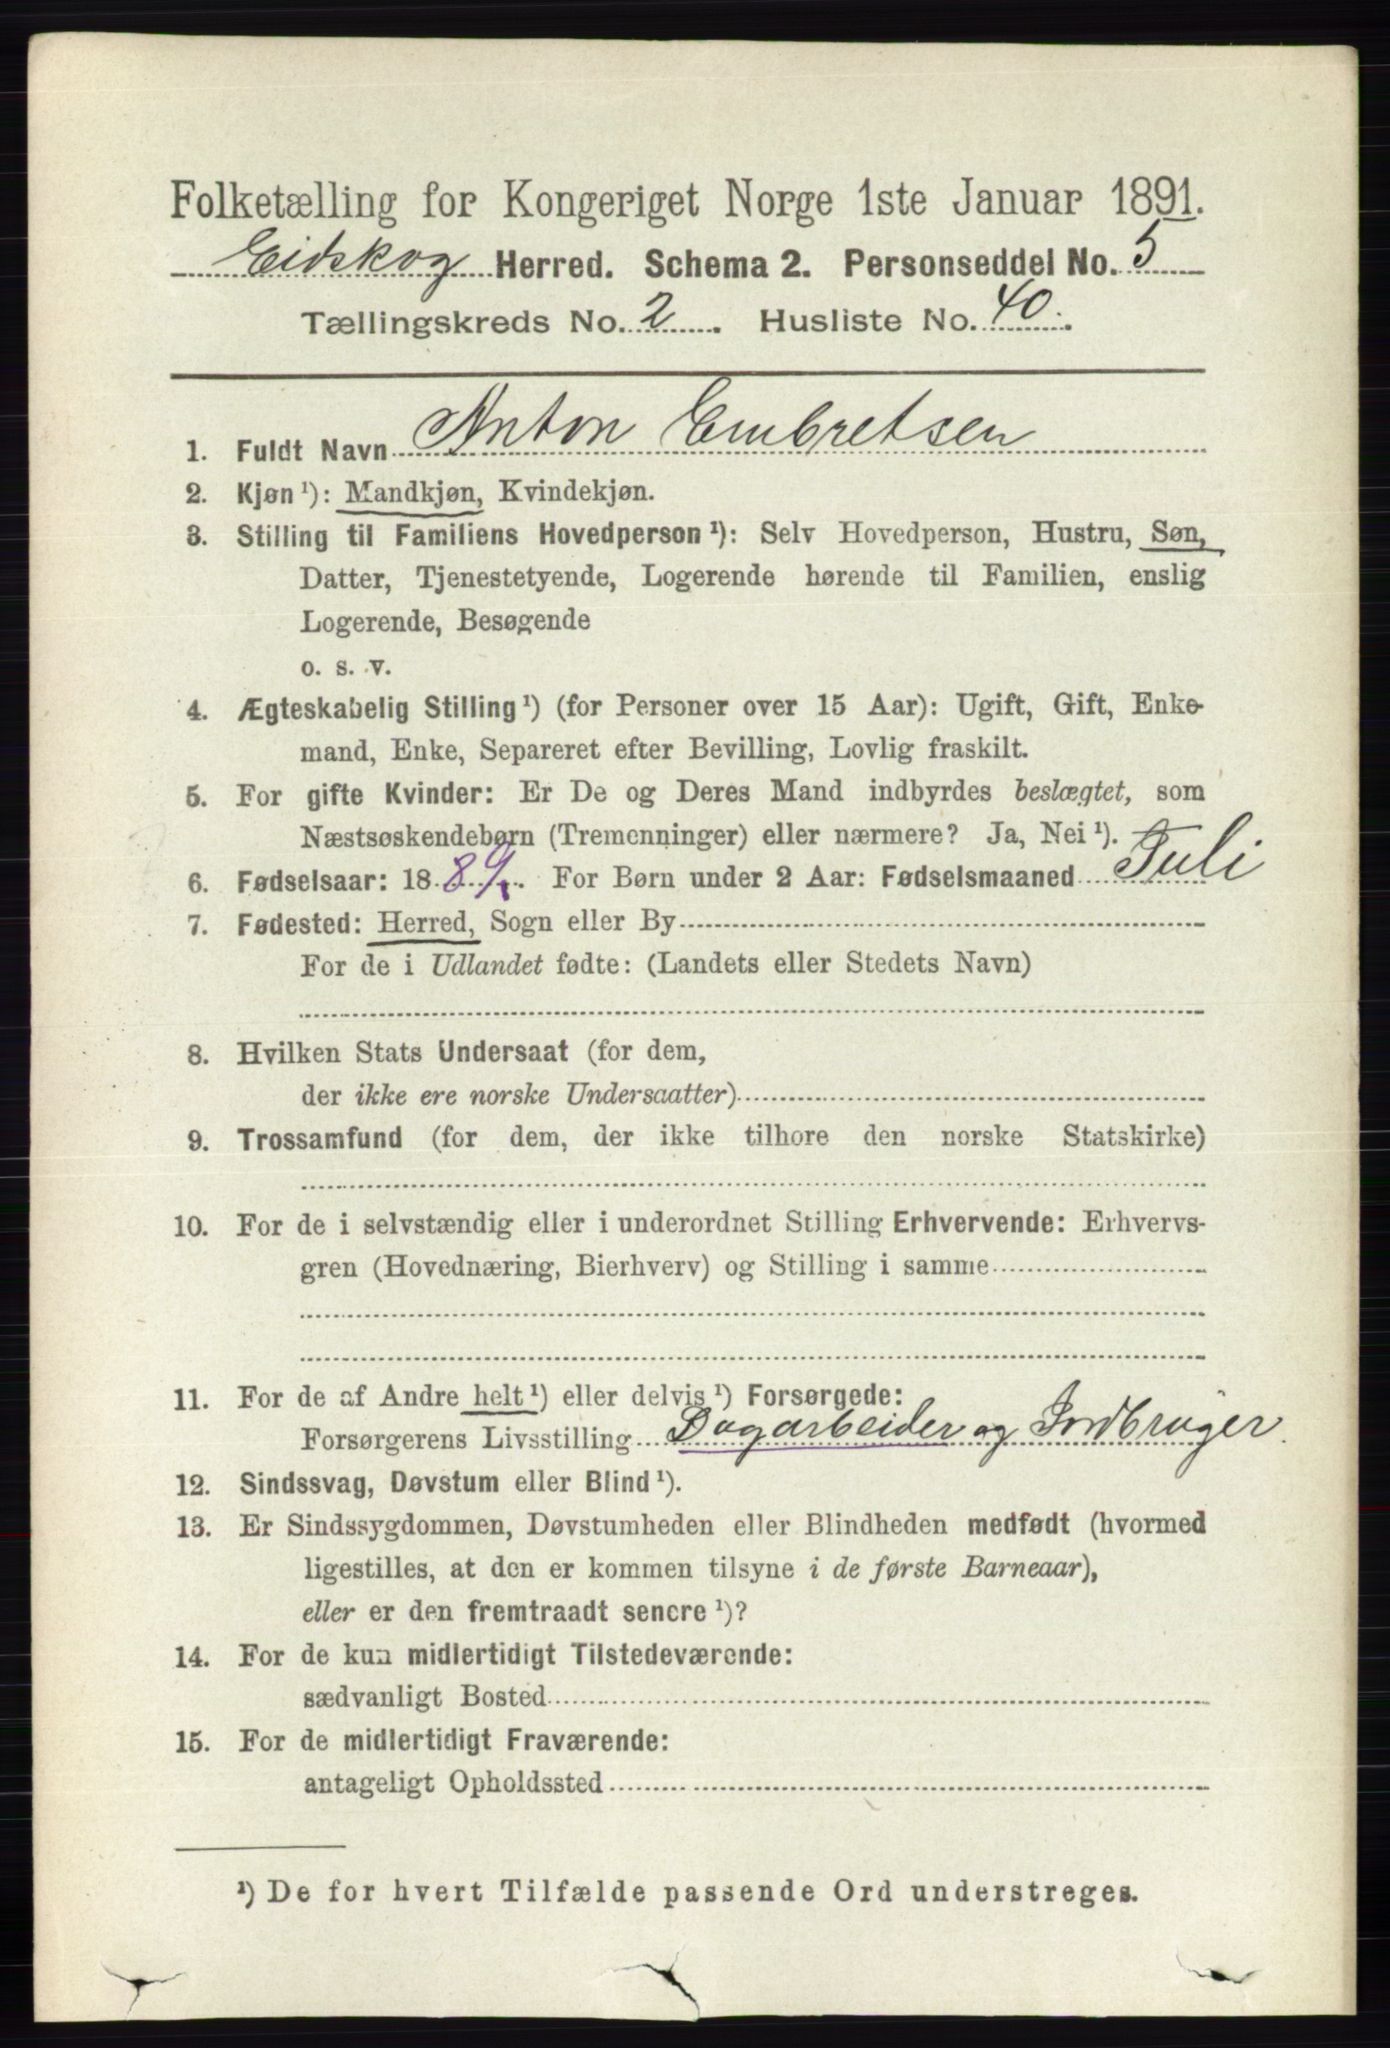 Folketælling for Kongeriget Norge 1ste Januar 1891.
Eidskog Herred. Schema 2. Personseddel No. 5
Tællingskreds No. 2. Husliste No. 40.
1. Fuldt Navn Anton Embretsen
2. Kjøn ¹): Mandkjøn, Kvindekjøn.
3. Stilling til Familiens Hovedperson ¹): Selv Hovedperson, Hustru, Søn,
Datter, Tjenestetyende, Logerende hørende til Familien, enslig
Logerende, Besøgende
o. s. v.
4. Ægteskabelig Stilling ¹) (for Personer over 15 Aar): Ugift, Gift, Enke-
mand, Enke, Separeret efter Bevilling, Lovlig fraskilt.
5. For gifte Kvinder: Er De og Deres Mand indbyrdes beslægtet, som
Næstsøskendebørn (Tremenninger) eller nærmere? Ja, Nei ¹).
6. Fødselsaar: 1889. For Børn under 2 Aar: Fødselsmaaned Juli
7. Fødested: Herred, Sogn eller By
For de i Udlandet fødte: (Landets eller Stedets Navn)
8. Hvilken Stats Undersaat (for dem,
der ikke ere norske Undersaatter)
9. Trossamfund (for dem, der ikke tilhore den norske Statskirke)
10. For de i selvstændig eller i underordnet Stilling Erhvervende: Erhvervs-
gren (Hovednæring, Bierhverv) og Stilling i samme
11. For de af Andre helt ¹) eller delvis ¹) Forsørgede:
Forsørgerens Livsstilling Dagarbeider og Jordbruger.
12. Sindssvag, Døvstum eller Blind ¹).
13. Er Sindssygdommen, Døvstumheden eller Blindheden medfødt (hvormed
ligestilles, at den er kommen tilsyne i de første Barneaar),
eller er den fremtraadt senere ¹)?
14. For de kun midlertidigt Tilstedeværende:
sædvanligt Bosted
15. For de midlertidigt Fraværende:
antageligt Opholdssted
¹) De for hvert Tilfælde passende Ord understreges.